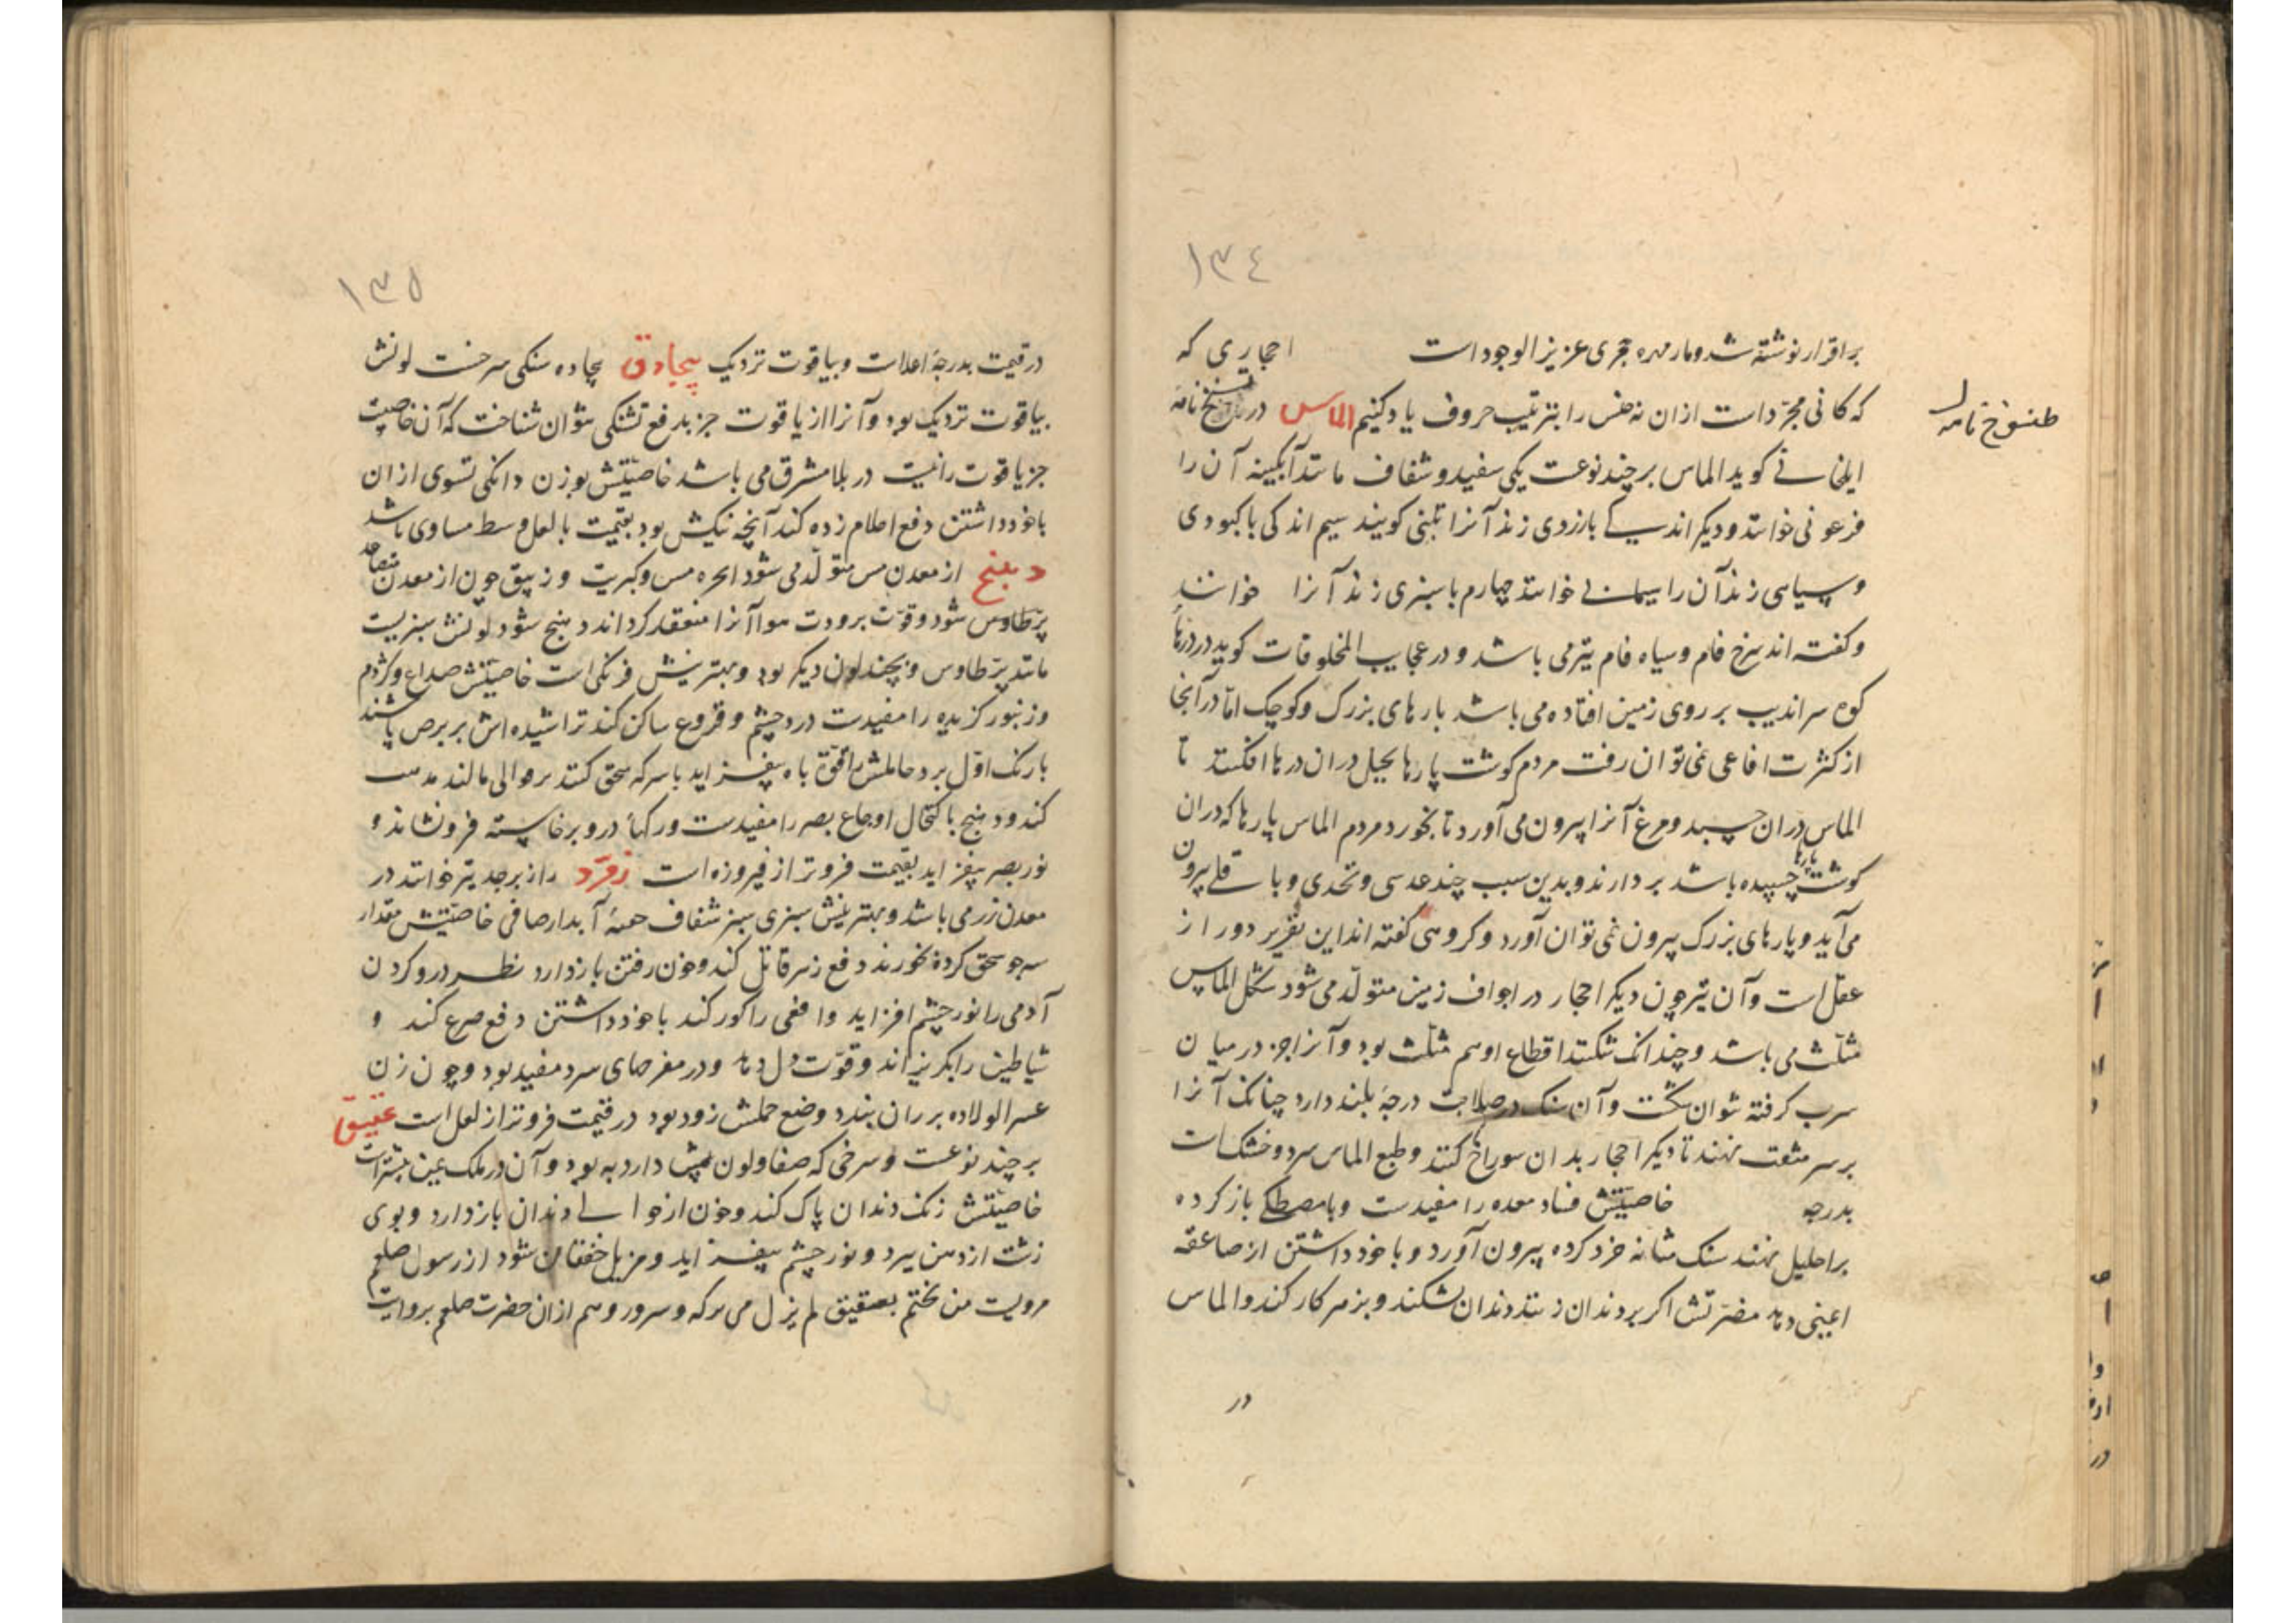 ١٣٤
براقرار نوشته شد و مار مهره حجری عزیز الوجود است احجاری که
که کانی مجرّد است از ان نه جنس را بترتیب حروف یاد کنیم الماس در تنسخ نامه
طنسوخ نامه
ایلخانی کوید الماس بر چند نوعست یکی سفید و شفاف مانند آبکینه آن را
فرعونی خوانند و دیکر اندکی بازردی زند آنرا تلبنی کویند سیم اندکی باکبودی
و سیاهی زند آن را سیمابی خوانند چهارم با سبزی زند آنرا خوانند
و کفته اند سرخ فام و سیاه فام نیز می باشد و در عجایب المخلوقات کوید در درّها
کوه سراندیب بر روی زمین افتاده می باشد بارهای بزرک و کوچک امّا در آنجا
از کثرت افاعی نمی توان رفت مردم کوشت پارها بحیل دران درها افکنند تا
الماس دران چسبد و مرغ آنرا بیرون می آورد تا بخورد مردم الماس پارها که دران
کوشت پارها چسپیده باشد بردارند و بدین سبب چند عدسی و نخدی و باقلی بیرون
می آید و پارهای بزرک بیرون نمی توان آورد و کروهی کفته اند این تقریر دور از
عقل است و آن نیز چون دیکر احجار در اجواف زمین متولّد می شود شکل الماس
مثلّث می باشد و چندانک شکنند اقطاع او هم مثلّث بود و آنرا جز در میان
سرب کرفته نتوان شکست و آن سنک در صلابت درجهٔ بلند دارد چنانک آنرا
بر سر مثقب نهند تا دیکر احجار بدان سوراخ کنند و طبع الماس سرد و خشکست
بدرجه خاصیّتش فساد معده را مفیدست و با مصطکی باز کرده
بر احلیل نهند سنک مثانه خرد کرده بیرون آورد و با خود داشتن از صاعقه
ایمنی دهد مضرّتش اکر بر دندان زنند دندان بشکند و بزهر کار کند و الماس
در
١٣٥
در قیمت بدرجهٔ اعلاست و بیاقوت نزدیک بیجادق بیجاده سنکی سرخست لونش
بیاقوت نزدیک بود و آنرا از یاقوت جز بدفع تشنکی نتوان شناخت که آن خاصیت
جز یاقوت را نیست در بلاد مشرق می باشد خاصیّتش بوزن دانکی تسوی از ان
با خود داشتن دفع احلام زده کند آنچه نیکش بود بقیمت با لعل وسط مساوی باشد
دهنج از معدن مس متولّد می شود ابخره مس و کبریت و زیبق چون از معدن متصاعد
پر طاوس شود و قوّت برودت هوا آنرا منعقد کرداند دهنج شود لونش سبزیست
مانند پر طاوس و بچند لون دیکر بود و بهترینش فرنکی است خاصیّتش صداع و کژدم
و زنبور کزیده را مفیدست درد چشم و قروع ساکن کند تراشیده اش بر برص پاشند
با رنک اوّل برد حاملش را قوّة باه بیفزاید با سرکه سحق کنند بر موالی مالند
کند و دهنج باکتحال اوجاع بصر را مفیدست و رکها در و برخاسته فرو نشاند و
نور بصر بیفزاید بقیمت فروتر از فیروزه است زمرّد را زبرجد نیز خوانند در
معدن زر می باشد و بهترینش سبزی سبز شفاف آبدار صافی خاصیّتش مقدار
سه جو سحق کرده بخورند دفع زهر قاتل کند و خون رفتن باز دارد نظر درو کردن
آدمی را نور چشم افزاید و افعی را کور کند با خود داشتن دفع صرع کند و
شیاطین را بکریزاند و قوّت دل دهد و در مرضهای سرد مفید بود و چون زن
عسر الولاده بر ران بندد وضع حملش زود بود در قیمت فروتر از لعل است عقیق
بر چند نوعست و سرخی که صفا و لون بیش دارد به بود و آن در ملک یمن بیشتر است
خاصیّتش زنک دندان پاک کند و خون از حوالی دندان باز دارد و بوی
زشت از دهن ببرد و نور چشم بیفزاید و مزیل خفقان شود از رسول صلعم
مرویست من تختم بعقیق لم یزل می برکه و سرور و هم از ان حضرت صلعم بروایت